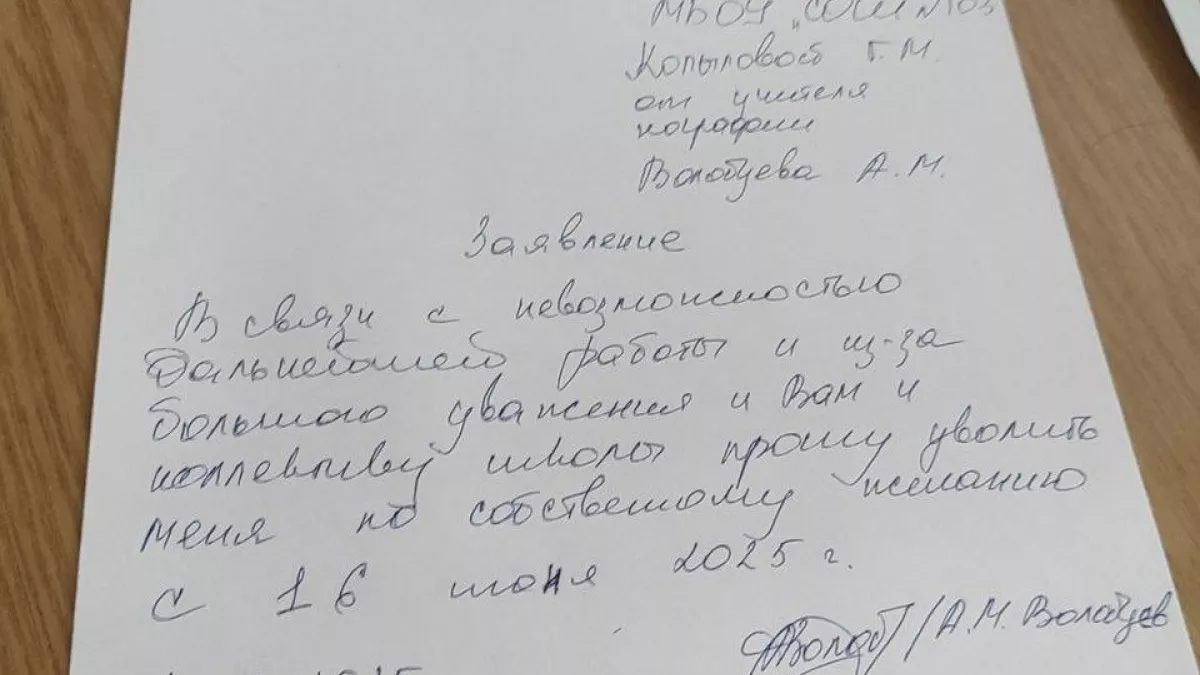 МБОУ "СОШ №03
Копыловой Г.М.
от учителя
географии
Волобуева А.М.
Заявление
В связи с невозможностью
дальнейшей работы и из-за
большого уважения и Вам и
коллективу школы прошу уволить
меня по собственному желанию
с 16 июня 2025 г.
/А.М. Волобуев